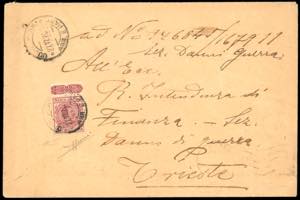 ad N.º 76845/67911
Sez. Danni Guerra
All' Ecc.
R. Intendenza di
Finanza - Sez.
Danni di guerra
Trieste